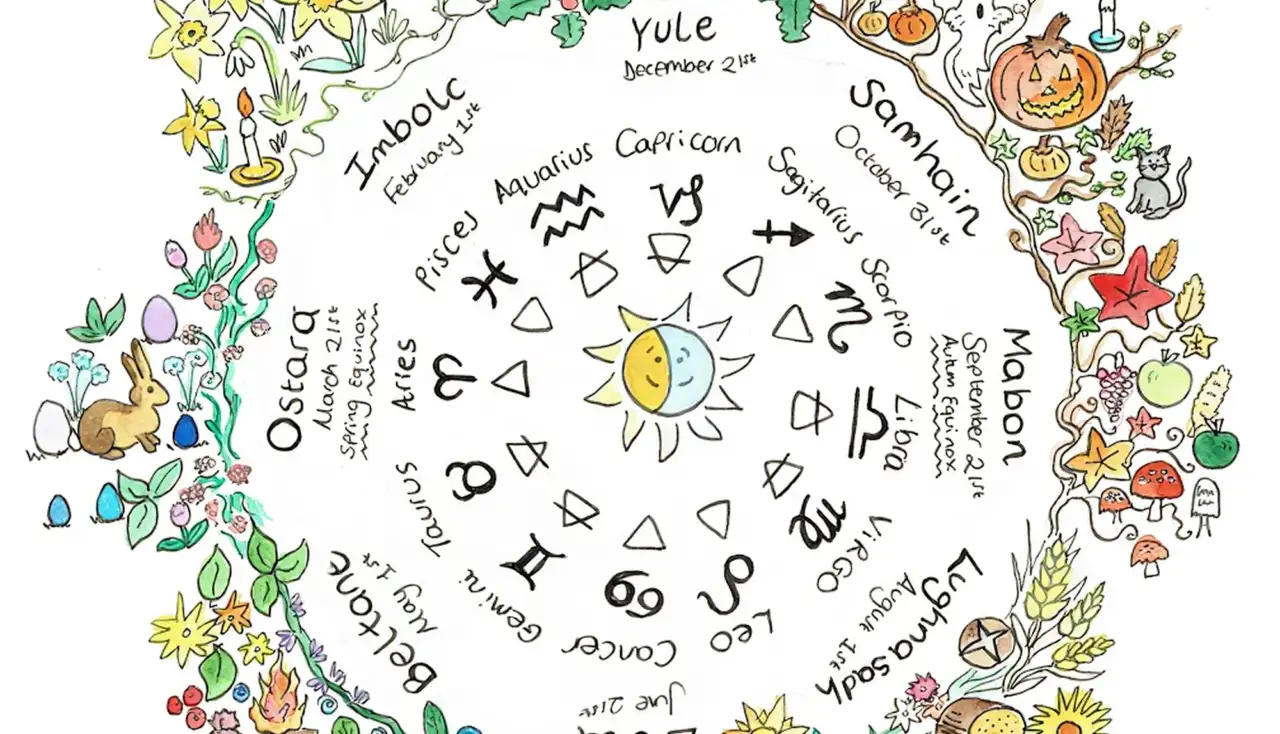 Yule
December 21st
Samhain
October 31st
Mabon
September 21st
Autumn Equinox
Lughnasadh
August 1st
June 21st
Beltane
May 1st
Ostara
March 21st
Spring Equinox
Imbolc
February 1st
Capricorn
Sagitarius
Scorpio
Libra
VIRGO
Leo
Cancer
Gemini
Taurus
Aries
Pisces
Aquarius